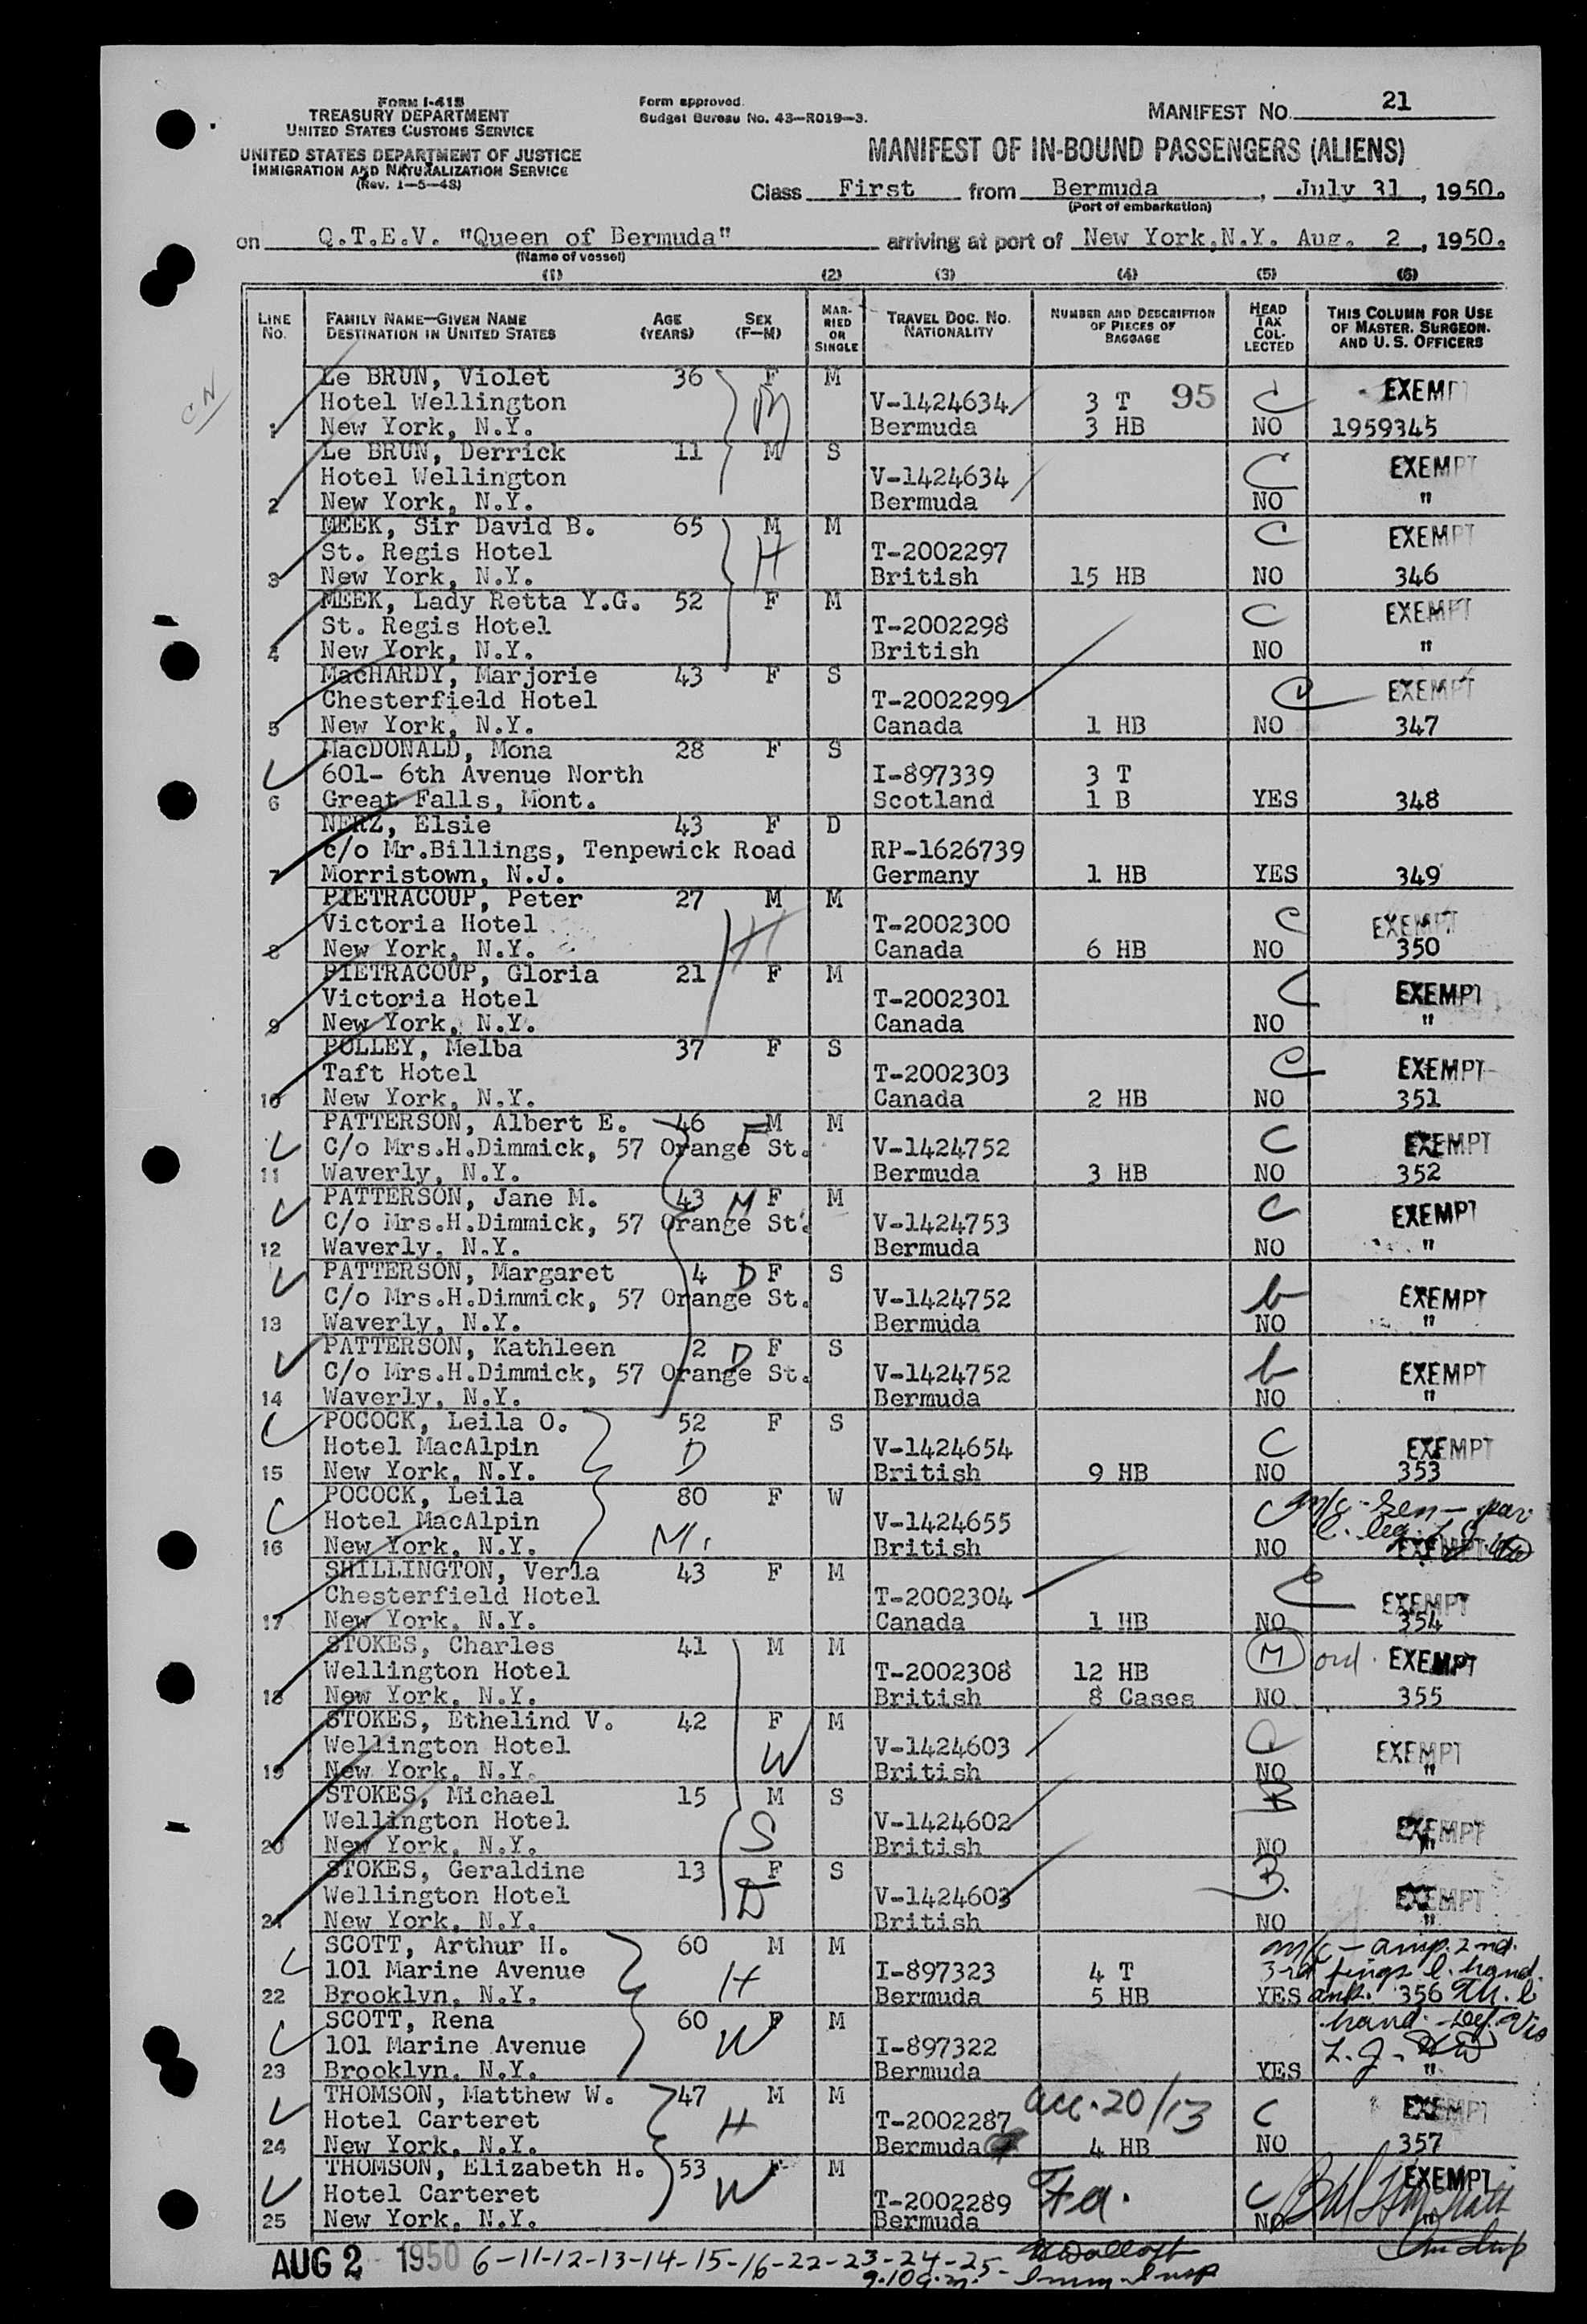 FORM I-415
TREASURY DEPARTMENT
UNITED STATES CUSTOMS SERVICE
UNITED STATES DEPARTMENT OF JUSTICE
IMMIGRATION AND NATURALIZATION SERVICE
(Rev. 1-5-48)
Form approved.
Budget Bureau No. 43-R019-3.
MANIFEST NO. 21
MANIFEST OF IN-BOUND PASSENGERS (ALIENS)
Class First from Bermuda, July 31, 1950.
(Port of embarkation)
on Q.T.E.V. "Queen of Bermuda" arriving at port of New York, N.Y. Aug. 2, 1950.
(Name of vessel)
(1) (2) (3) (4) (5) (6)
LINE No. FAMILY NAME—GIVEN NAME DESTINATION IN UNITED STATES AGE (YEARS) SEX (F—M) MARRIED OR SINGLE TRAVEL DOC. NO. NATIONALITY NUMBER AND DESCRIPTION OF PIECES OF BAGGAGE HEAD TAX COLLECTED THIS COLUMN FOR USE OF MASTER, SURGEON, AND U. S. OFFICERS
Le BRUN, Violet 36 F M EXEMPT
Hotel Wellington V-1424634 3 T 95 C
1 New York, N.Y. Bermuda 3 HB NO 1959345
Le BRUN, Derrick 11 M S EXEMPT
Hotel Wellington V-1424634 C
2 New York, N.Y. Bermuda NO "
MEEK, Sir David B. 65 M M C EXEMPT
St. Regis Hotel H T-2002297
3 New York, N.Y. British 15 HB NO 346
MEEK, Lady Retta Y.G. 52 F M C EXEMPT
St. Regis Hotel T-2002298
4 New York, N.Y. British NO "
MacHARDY, Marjorie 43 F S C EXEMPT
Chesterfield Hotel T-2002299
5 New York, N.Y. Canada 1 HB NO 347
MacDONALD, Mona 28 F S
601- 6th Avenue North I-897339 3 T
6 Great Falls, Mont. Scotland 1 B YES 348
NERZ, Elsie 43 F D
c/o Mr.Billings, Tenpewick Road RP-1626739
7 Morristown, N.J. Germany 1 HB YES 349
PIETRACOUP, Peter 27 M M
Victoria Hotel H T-2002300 C EXEMPT
8 New York, N.Y. Canada 6 HB NO 350
PIETRACOUP, Gloria 21 F M
Victoria Hotel T-2002301 C EXEMPT
9 New York, N.Y. Canada NO "
POLLEY, Melba 37 F S
Taft Hotel T-2002303 C EXEMPT
10 New York, N.Y. Canada 2 HB NO 351
PATTERSON, Albert E. 46 F M M
C/o Mrs.H.Dimmick, 57 Orange St. V-1424752 C EXEMPT
11 Waverly, N.Y. Bermuda 3 HB NO 352
PATTERSON, Jane M. 43 M F M
C/o Mrs.H.Dimmick, 57 Orange St. V-1424753 C EXEMPT
12 Waverly, N.Y. Bermuda NO "
PATTERSON, Margaret 4 D F S
C/o Mrs.H.Dimmick, 57 Orange St. V-1424752 b EXEMPT
13 Waverly, N.Y. Bermuda NO "
PATTERSON, Kathleen 2 D F S
C/o Mrs.H.Dimmick, 57 Orange St. V-1424752 b EXEMPT
14 Waverly, N.Y. Bermuda NO "
POCOCK, Leila O. 52 F S
Hotel MacAlpin D V-1424654 C EXEMPT
15 New York, N.Y. British 9 HB NO 353
POCOCK, Leila 80 F W
Hotel MacAlpin V-1424655 C m/c - Sen -
16 New York, N.Y. M. British NO EXEMPT
SHILLINGTON, Verla 43 F M
Chesterfield Hotel T-2002304 C EXEMPT
17 New York, N.Y. Canada 1 HB NO 354
STOKES, Charles 41 M M M
Wellington Hotel T-2002308 12 HB EXEMPT
18 New York, N.Y. British 8 Cases NO 355
STOKES, Ethelind V. 42 F M
Wellington Hotel W V-1424603 EXEMPT
19 New York, N.Y. British NO "
STOKES, Michael 15 M S B
Wellington Hotel S V-1424602 EXEMPT
20 New York, N.Y. British NO "
STOKES, Geraldine 13 F S B.
Wellington Hotel D V-1424603 EXEMPT
21 New York, N.Y. British NO "
SCOTT, Arthur H. 60 M M m/c - amp. 2nd.
101 Marine Avenue H I-897323 4 T 3rd fings l. hand.
22 Brooklyn, N.Y. Bermuda 5 HB YES 356
SCOTT, Rena 60 F M hand - Def. Vis
101 Marine Avenue W I-897322 L.J.
23 Brooklyn, N.Y. Bermuda YES "
THOMSON, Matthew W. 47 M M acc. 20/13
Hotel Carteret H T-2002287 C EXEMPT
24 New York, N.Y. Bermuda 4 HB NO 357
THOMSON, Elizabeth H. 53 F M EXEMPT
Hotel Carteret W T-2002289 C
25 New York, N.Y. Bermuda NO "
AUG 2 1950 6-11-12-13-14-15-16-22-23-24-25-
9.10 a.m. Imm. Insp